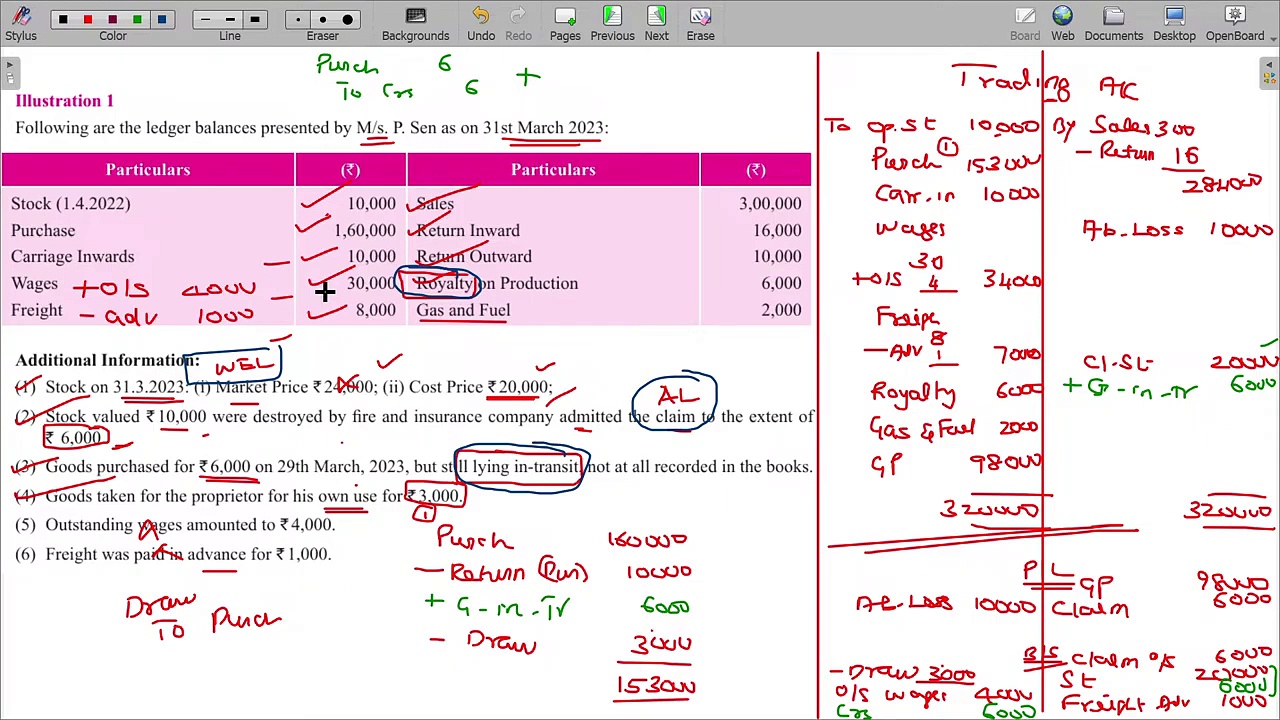 Stylus
Color
Line
Eraser
Backgrounds
Undo
Redo
Pages
Previous
Next
Erase
Board
Web
Documents
Desktop
OpenBoard
Purch 6
To Crs 6 +
Illustration 1
Following are the ledger balances presented by M/s. P. Sen as on 31st March 2023:
Particulars (₹) Particulars (₹)
Stock (1.4.2022) 10,000 Sales 3,00,000
Purchase 1,60,000 Return Inward 16,000
Carriage Inwards 10,000 Return Outward 10,000
Wages +O/S 4000 30,000 Royalty on Production 6,000
Freight - adv 1000 8,000 Gas and Fuel 2,000
Additional Information: WEL
(1) Stock on 31.3.2023: (i) Market Price ₹ 24,000; (ii) Cost Price ₹ 20,000;
AL
(2) Stock valued ₹ 10,000 were destroyed by fire and insurance company admitted the claim to the extent of
₹ 6,000
(3) Goods purchased for ₹ 6,000 on 29th March, 2023, but still lying in-transit, not at all recorded in the books.
(4) Goods taken for the proprietor for his own use for ₹ 3,000.
1
(5) Outstanding wages amounted to ₹ 4,000.
(6) Freight was paid in advance for ₹ 1,000.
Draw
To Purch
Purch 160000
- Return (Pur) 10000
+ G-in-Tr 6000
- Draw 3000
153000
Trading A/C
To Op. St 10,000 By Sales 300
Purch 1 153000 - Return 16
284000
Carr. in 10000
Wages Ab. Loss 10000
30
+O/S 4 34000
Freigh
8
- Adv 1 7000 Cl. St 20000
Royalty 6000 + G-in-Tr 6000
Gas & Fuel 2000
GP 98000
320000 320000
P L
GP 98000
Ab. Loss 10000 Claim 6000
B/S
Claim o/s 6000
- Draw 3000 St 20000
6000
O/S Wages 4000 Freight Adv 1000
Crs 6000